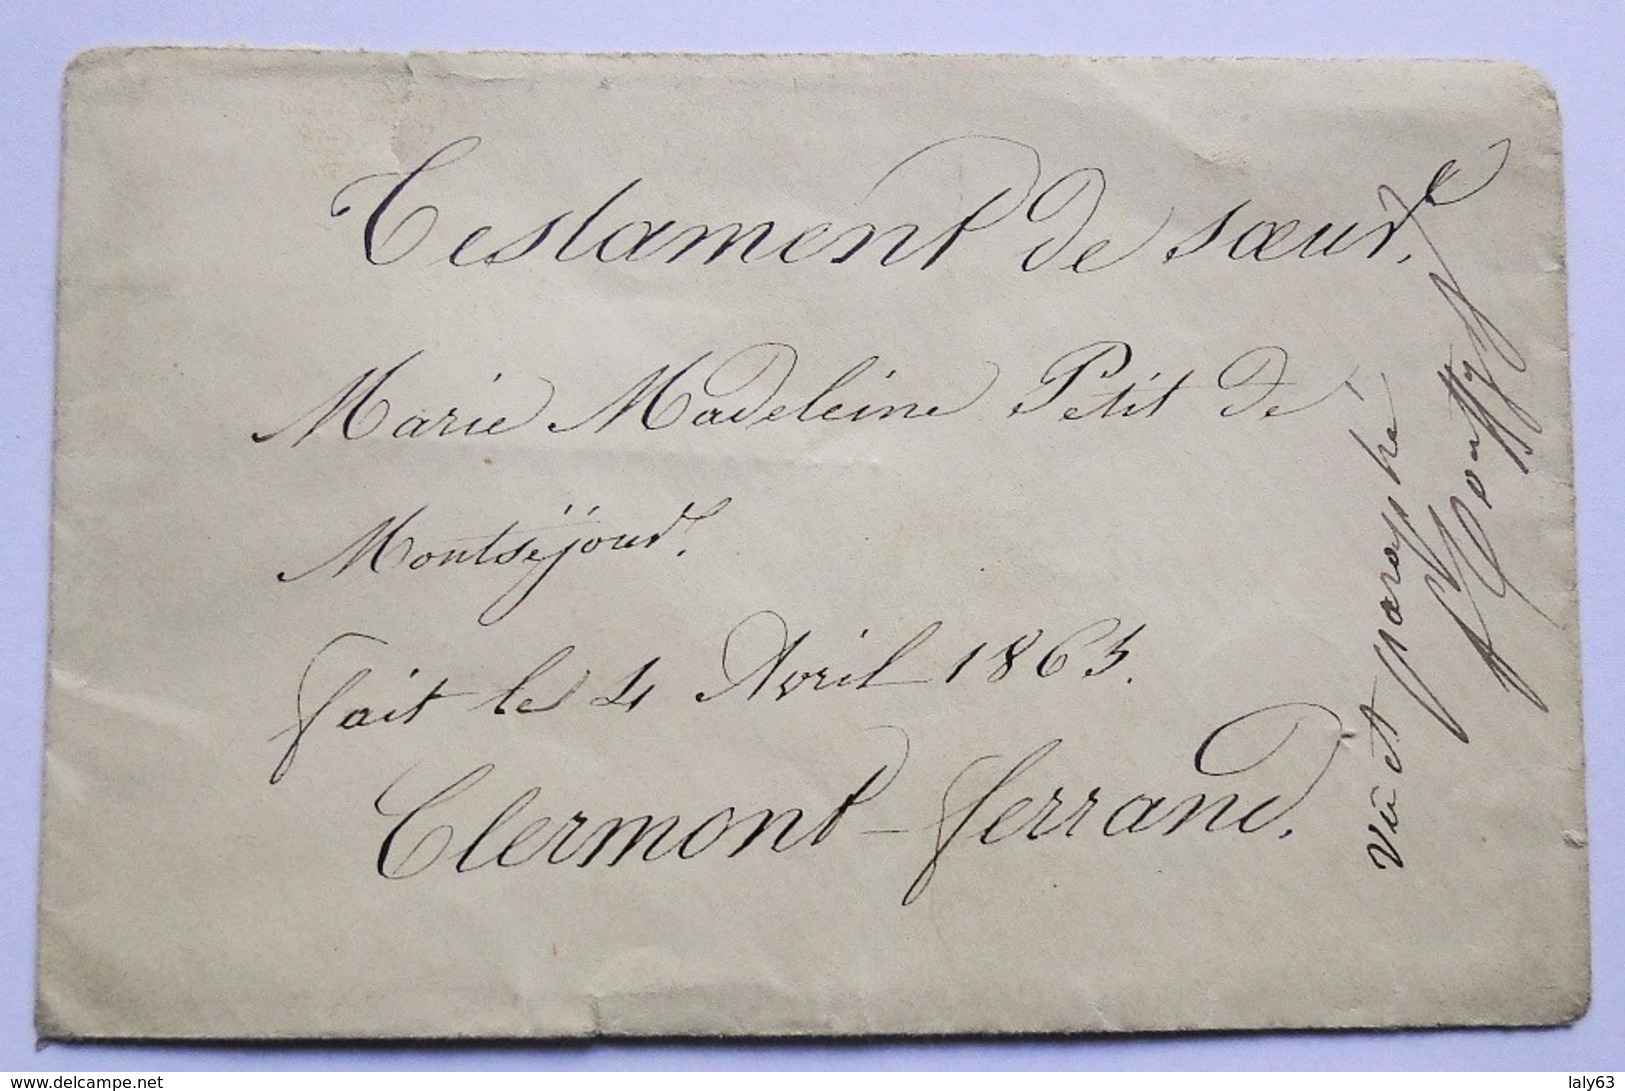 Testament de sœur.
Marie Madeleine Petit de
Montséjour.
fait le 4 Avril 1863.
Clermont-ferrand.
Vu et paraphé
www.delcampe.net
laly63